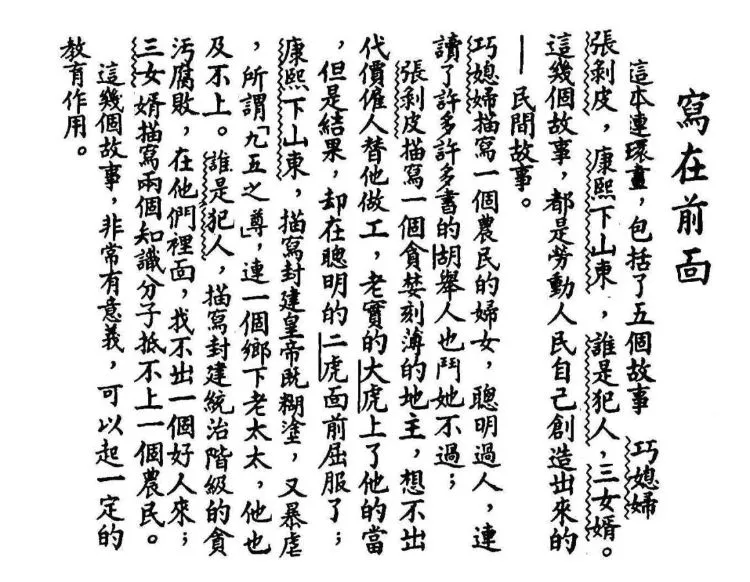 寫在前面
這本連環畫，包括了五個故事　巧媳婦
張剝皮，康熙下山東，誰是犯人，三女婿。
這幾個故事，都是勞動人民自己創造出來的
——民間故事。
巧媳婦描寫一個農民的婦女，聰明過人，連
讀了許多許多書的胡舉人也鬥她不過；
張剝皮描寫一個貪婪刻薄的地主，想不出
代價僱人替他做工，老實的大虎上了他的當
，但是結果，却在聰明的二虎面前屈服了；
康熙下山東，描寫封建皇帝旣糊塗，又暴虐
，所謂「九五之尊」，連一個鄉下老太太，他也
及不上。誰是犯人，描寫封建統治階級的貪
污腐敗，在他們裡面，找不出一個好人來；
三女婿描寫兩個知識分子抵不上一個農民。
這幾個故事，非常有意義，可以起一定的
教育作用。